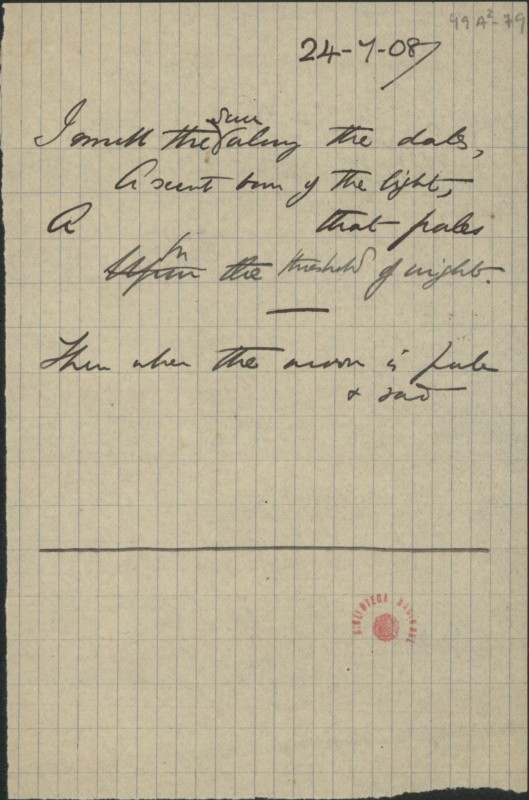 49A²-79
24-7-08
I smell the along the dales,
A scent born of the light,
A that pales
Upon In the threshold of night.
Then when the moon is pale
& sad
BIBLIOTECA NACIONAL